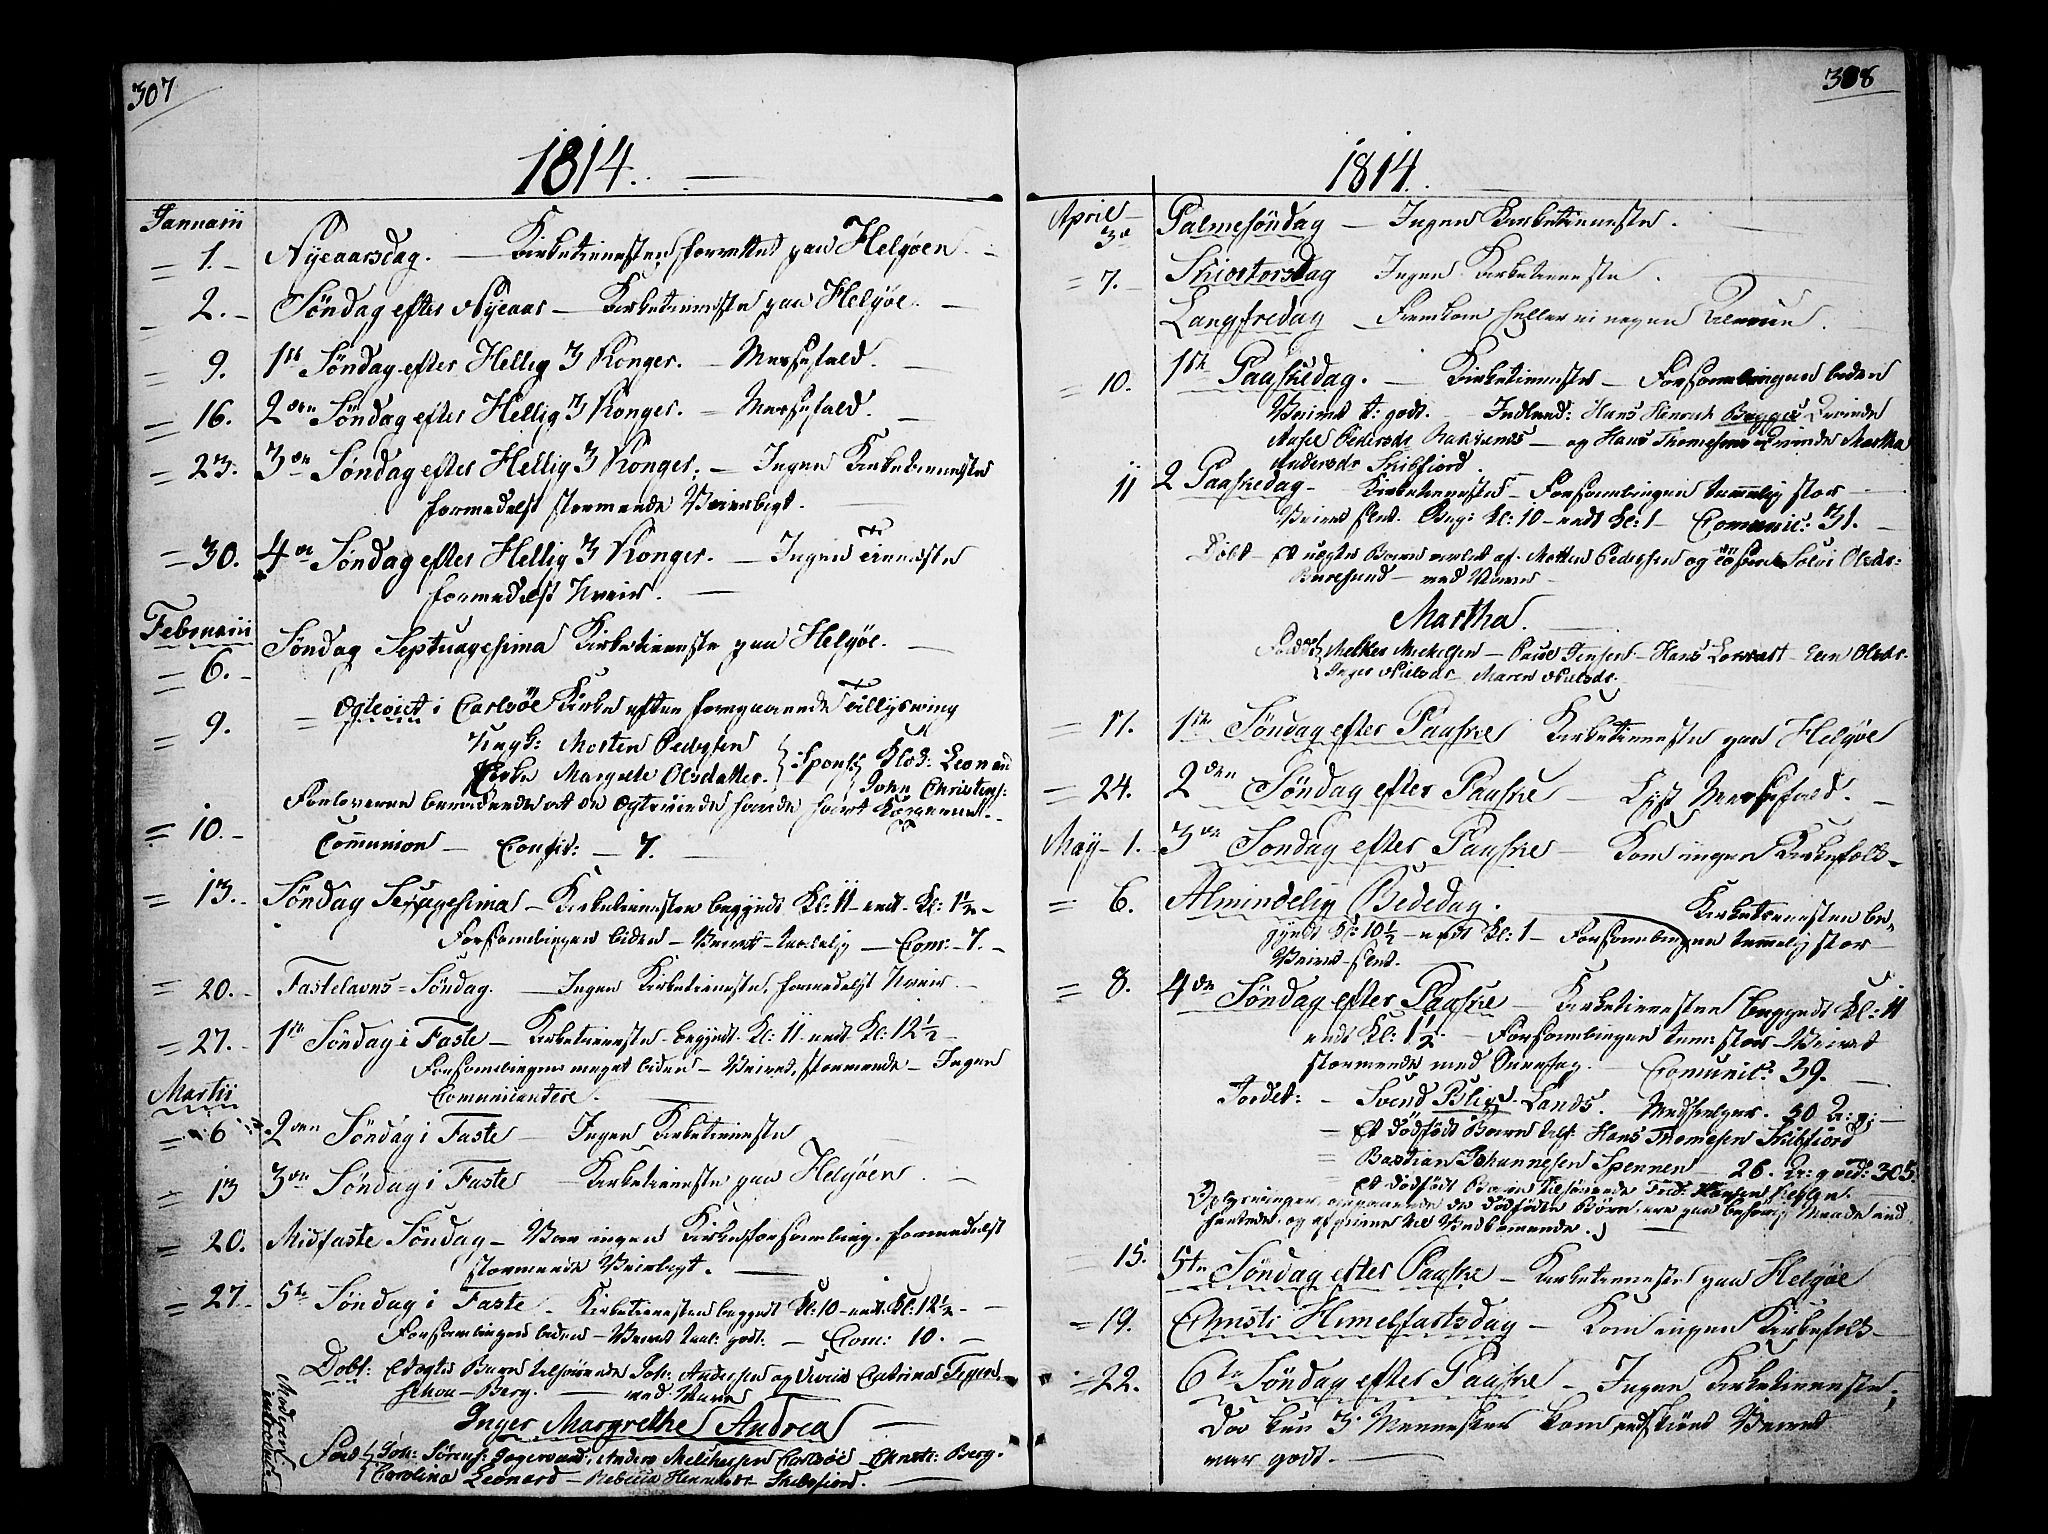 307
1814.
Januarii
= 1. - Nyeaarsdag. — Kirketienesten forrettet paa Helgøen. -
- 2. - Søndag efter Nyeaar — Kirketieneste paa Helgøe. —
= 9. 1ste Søndag efter Hellig 3 Konger. — Messefald. —
= 16. 2den Søndag efter Hellig 3 Konger. — Messefald. —
= 23. 3die Søndag efter Hellig 3 Konger. — Ingen Kirketieneste
formedelst stormende Veirligt. —
= 30. 4de Søndag efter Hellig 3 Konger. — Ingen Tieneste
formedelst Uveir. —
Februarii
= 6. - Søndag Septuagesima Kirketieneste paa Helgøe. —
= 9. = Ægteviet i Carlsöe Kirke efter foregaaende Tillysning
Ungk: Morten Pedersen
Enke Margrete Olsdatter. } Spons: { Klod: Leonard
John Christens:
Forloverne bevidnede at de Ægteviede havde havt Kopperne. -
= 10. - Communion — Confit: — 7. —
= 13. - Søndag Sexagesima — Kirketienesten begyndt Kl: 11 - endt - Kl: 1½ -
Forsamlingen liden — Veiret - taalelig — Com: - 7. -
= 20. - Fastelavns = Søndag. — Ingen Kirketieneste, formedelst Uveir. -
= 27. - 1ste Søndag i Faste — Kirketieneste - begyndt. Kl: 11 endt Kl: 12½ -
Forsamlingen meget liden — Veiret, stormende — Ingen
Comunicantere. —
Martii
= 6 2den Søndag i Faste — Ingen Kirketieneste
= 13 3die Søndag i Faste — Kirketieneste paa Helgøen. —
= 20. Midfaste Søndag — Var ingen Kirkeforsamling, formedelst
stormende Veirligt. —
= 27. - 5te Søndag i Faste — Kirketienesten begyndt Kl: 10 - endt Kl: 12½ -
Forsamlingen liden - Veiret taal: godt. — Com: 10. -
Döbt: Et ægte Barn tilhørende Joh: Andersen og Qvinde Catrina
Berg. — ved Navn
Inger Margrethe Andrea —
Anders Melchersen Carlsöe - Christi: Berg.
Carolina Leonard — Rebecca Skibsfiord. —
308
1814.
April
3de Palmesöndag — Ingen Kirketieneste.
= 7. - Skiertorsdag Ingen Kirketieneste.
Langfredag — Fremkom heller ei nogen Almue.
= 10. 1ste Paaskedag. — Kirketieneste — Forsamlingen liden
Veiret t: godt. — Indled: Hans Henrich Bugges Qvinde
og Hans Thomesens Qvinde Martha
Andersdr Skibfiord.
11 2 Paaskedag — Kirketieneste — Forsamlingen tem̄elig stor —
Veiret slet. Beg: Kl: 10 - endt Kl: 1 — Comunic: 31. —
Döbt — Et uægte Barn avlet af Morten Pedersen og Solvi Olsdr:
— ved Navn —
Martha.
Melker Michelsen — Paul Jensen — Hans Lorratt — Olsdr-
Inger Nielsdr Maren Nielsdr.
= 17. 1ste Søndag efter Paaske Kirketieneste paa Helgøe
= 24. 2den Søndag efter Paaske — Messefald. —
May - 1. - 3die Søndag efter Paaske — Kom ingen Kirkefolk -
= 6. Almindelig Bededag. — Kirketienesten be-
gyndt Kl: 10½ - endt Kl: 1 — Forsamlingen tem̄elig stor —
Veiret - slet. —
= 8. 4de Søndag efter Paaske — Kirketienesten begyndt Kl: 11
endt Kl: 1½ — Forsamlingen tem: stor — Veiret
stormende med Sneefog. — Comunic: 39. —
Jordet: — Svend
= Et dödfödt Barn tilh: Hans Thomesen Skibfiord
= Bastian Johannesen Spennen — 26.
= Et dödfödt Barn tilhørende
Oplysninger angaaende de dødfødte Børn
= 15. 5te Søndag efter Paaske — Kirketieneste paa Helgøe
= 19. Christi Himelfartsdag — Kom ingen Kirkefolk —
= 22. 6te Søndag efter Paaske — Ingen Kirketieneste,
Da kun 3 Mennesker kom endskiönt Veiret
var godt. —